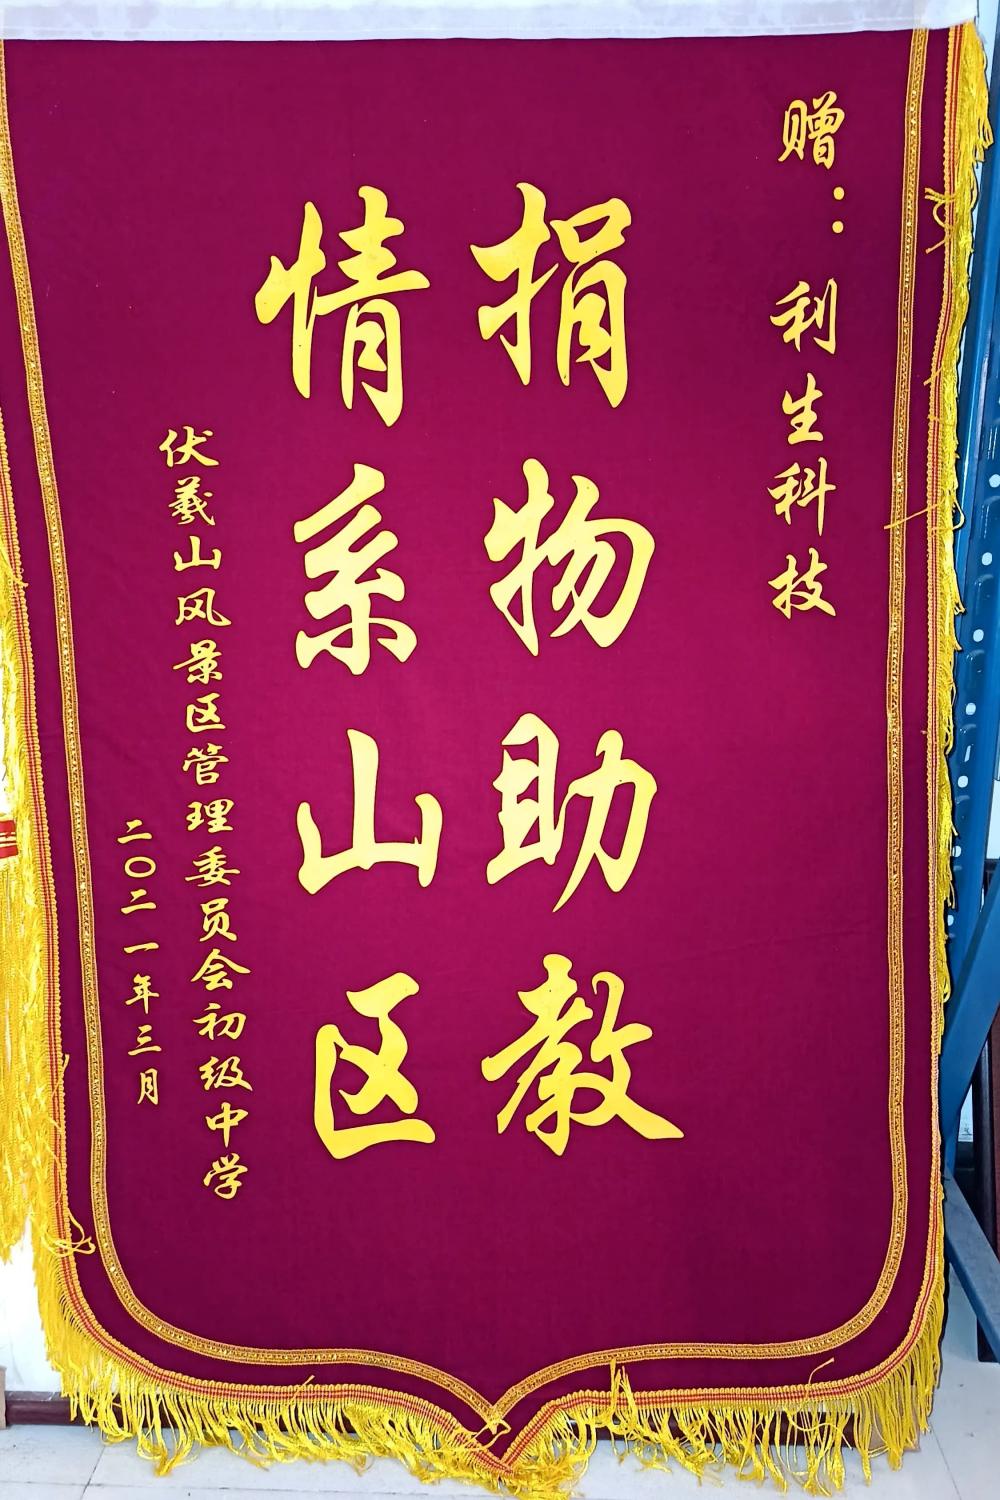 赠：利生科技
捐物助教
情系山区
伏羲山风景区管理委员会初级中学
二〇二一年三月